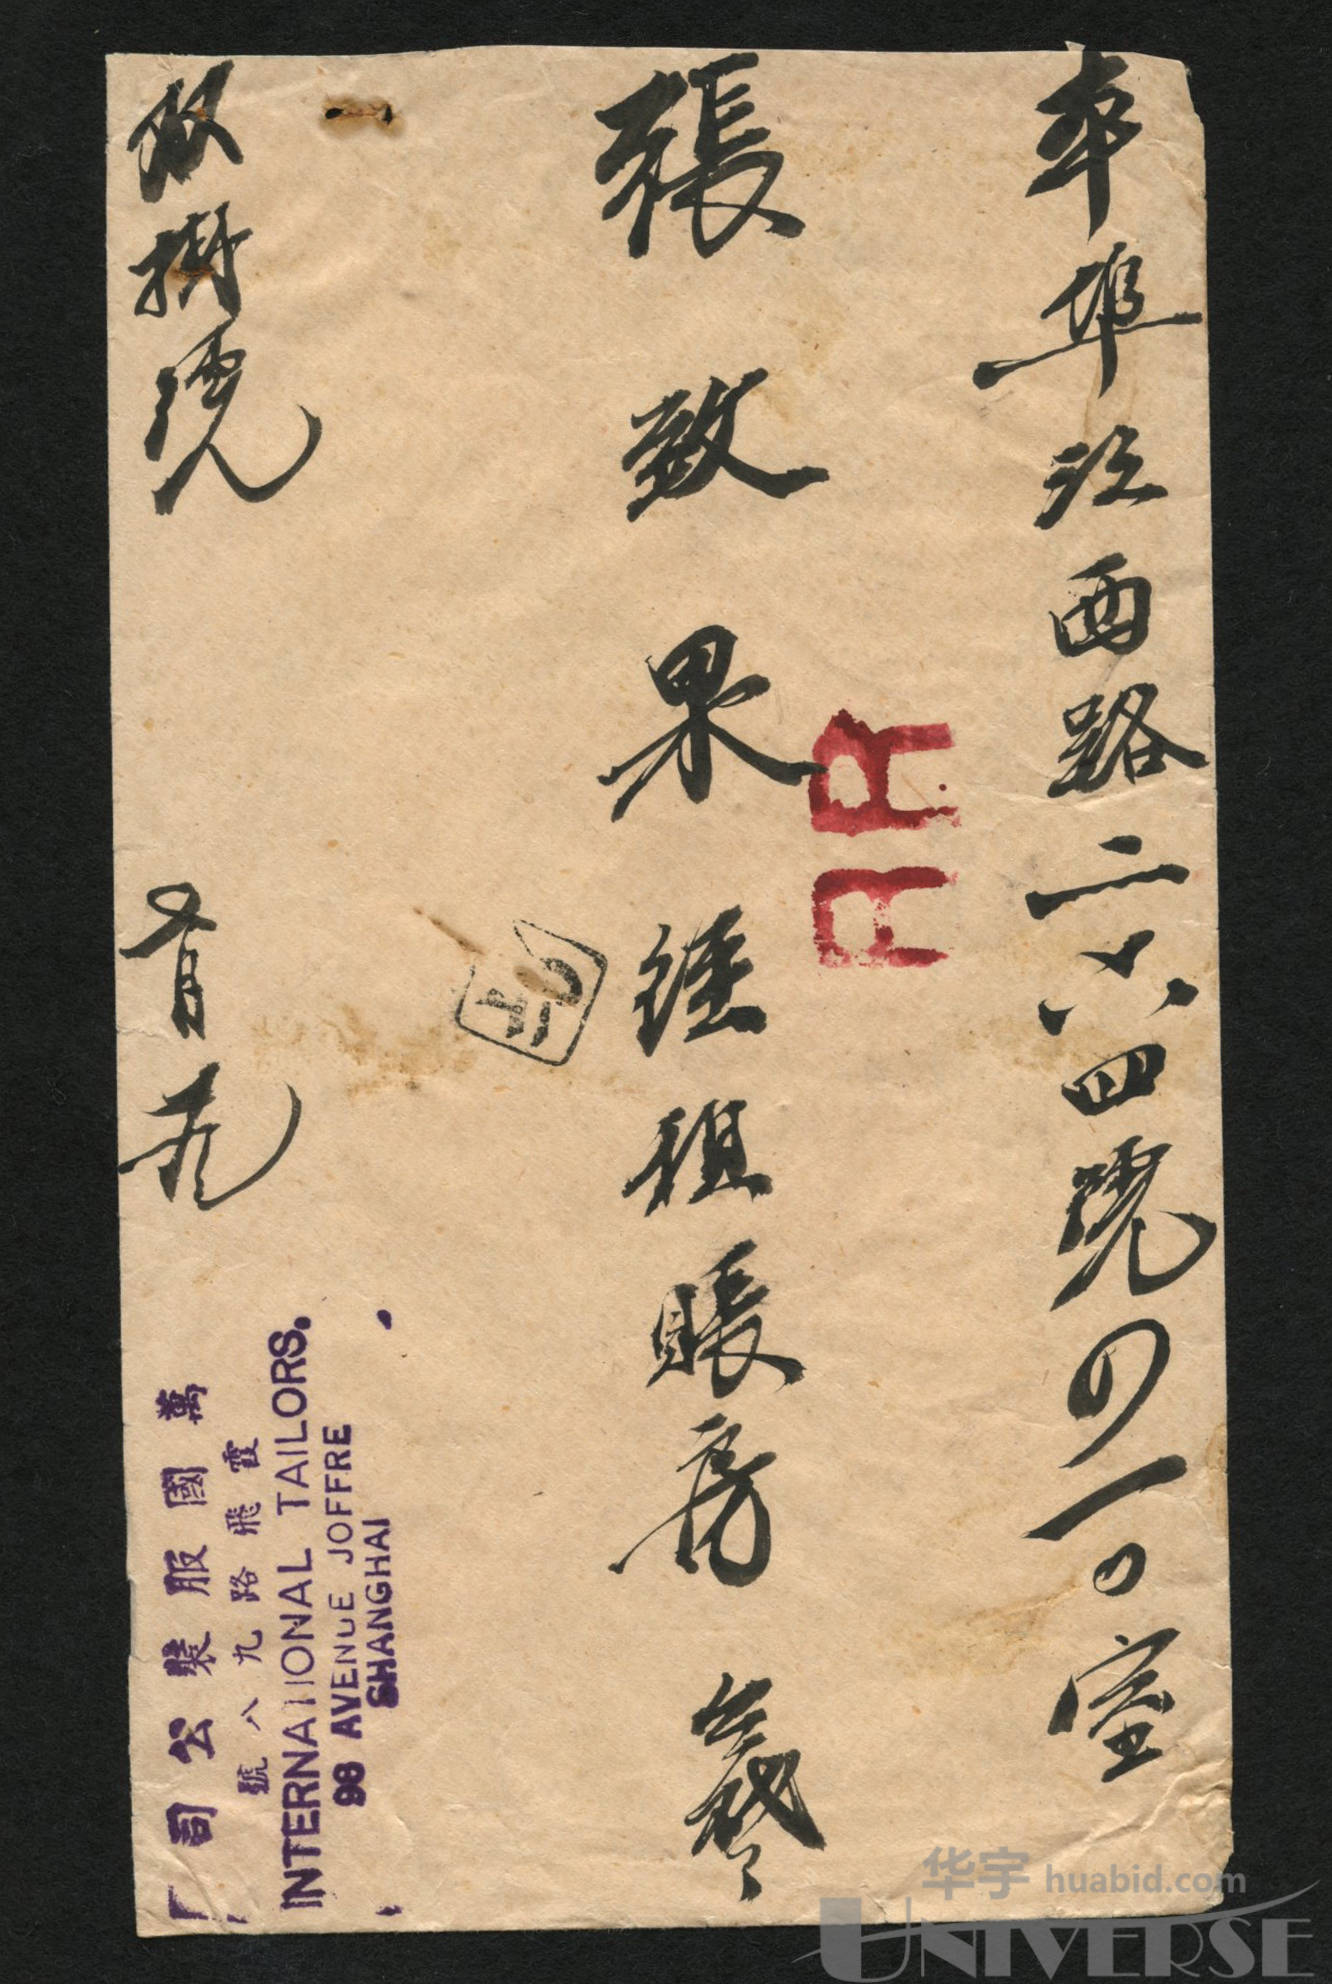 本埠江西路二六四號四一〇室
張致果經租賬房 台啟
雙掛號
AR
萬國服裝公司
霞飛路九八號
INTERNATIONAL TAILORS.
98 AVENUE JOFFRE
SHANGHAI
华宇 huabid.com
UNIVERSE